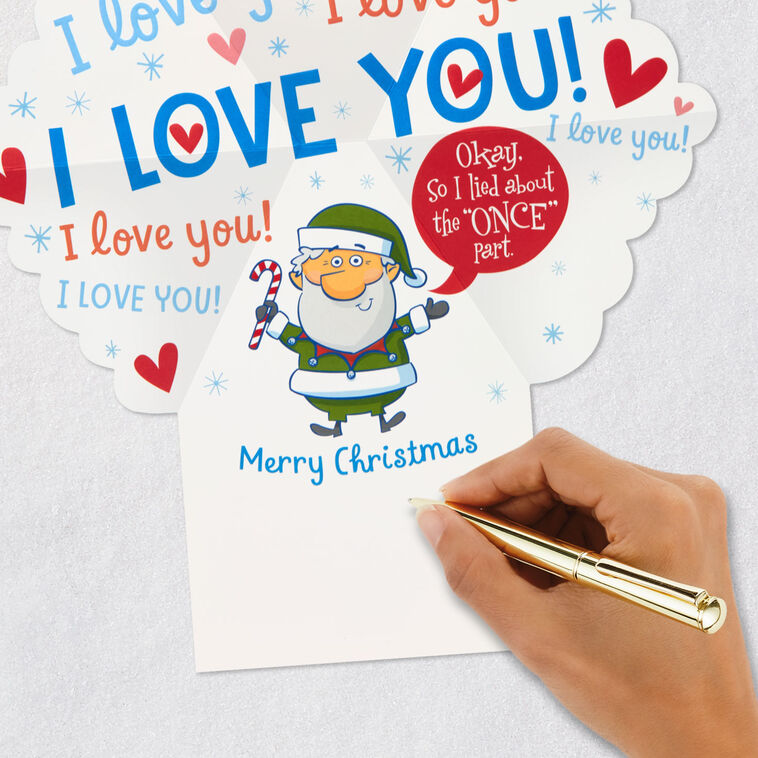 I love you!
I love you!
I LOVE YOU!
I love you!
Okay,
So I lied about
the "ONCE"
part.
I love you!
I LOVE YOU!
Merry Christmas